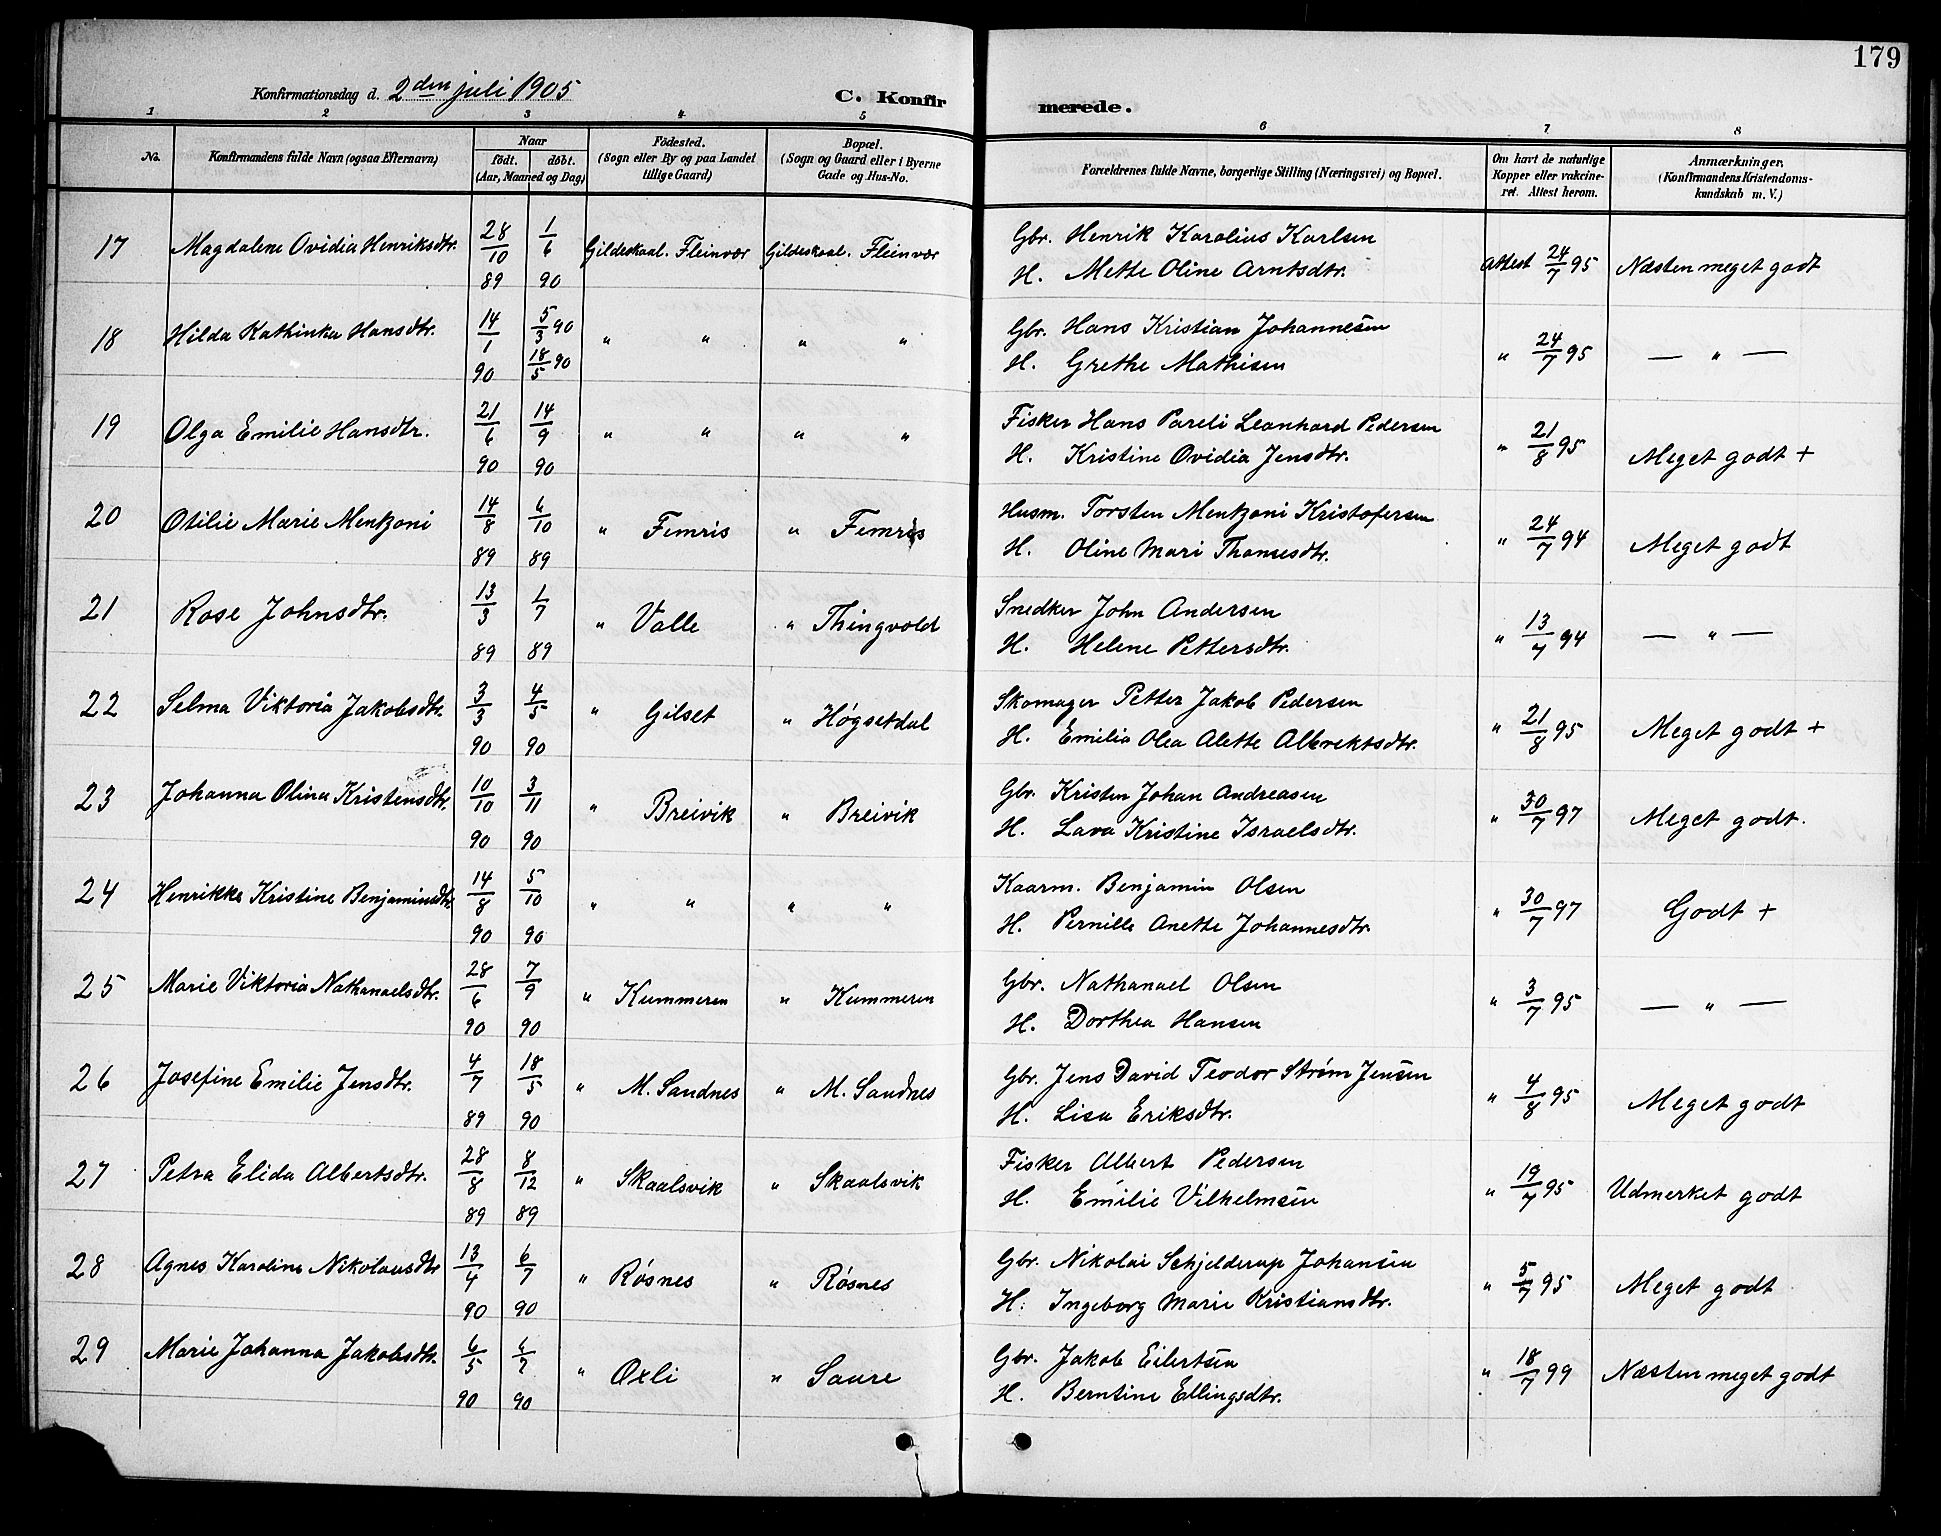 179
Konfirmationsdag d. 2den juli 1905 C. Konfirmerede.
1 2 3 4 5 6 7 8
No. Konfirmandens fulde Navn (ogsaa Efternavn) Naar født. døbt. (Aar, Maaned og Dag) Fødested. (Sogn eller By og paa Landet tillige Gaard) Bopæl. (Sogn og Gaard eller i Byerne Gade og Hus-No. Forældrenes fulde Navne, borgerlige Stilling (Næringsvei) og Bopæl. Om havt de naturlige Kopper eller vakcineret. Attest herom. Anmærkninger, (Konfirmandens Kristendomskundskab m. V.)
17 Magdalene Ovidia Henriksdtr. 28/10 89 1/6 90 Gildeskaal. Fleinvær Gildeskaal. Fleinvær Gbr. Henrik Karolius Karlsen
H. Mette Oline Arntsdtr. Attest 24/7 95 Næsten meget godt
18 Hilda Kathinka Hansdtr. 14/1 90 5/3 90 18/5 90 " " " " Gbr. Hans Kristian Johannesen
H. Grethe Mathisen " 24/7 95 — " —
19 Olga Emilie Hansdtr. 21/6 90 14/9 90 " " " " Fisker Hans Pareli Leonhard Pedersen
H. Kristine Ovidia Jensdtr. " 21/8 95 Meget godt +
20 Otilie Marie Mentzoni 14/8 89 6/10 89 " Femris " Femris Husm. Torsten Mentzoni Kristofersen
H. Oline Mari Thomesdtr. " 24/7 94 Meget godt
21 Rose Johnsdtr. 13/3 89 1/7 89 " Valle " Thingvold Snedker John Andersen
H. Helene Pettersdtr. " 13/7 94 — " —
22 Selma Viktoria Jakobsdtr. 3/3 90 4/5 90 " Gilset " Høgsetdal Skomager Petter Jakob Pedersen
H. Emilia Olea Alette Albrektsdtr. " 21/8 95 Meget godt +
23 Johanna Olina Kristensdtr. 10/10 90 3/11 90 " Breivik " Breivik Gbr. Kristen Johan Andreasen
H. Lava Kristine Israelsdtr. " 30/7 97 Meget godt.
24 Henrikke Kristine Benjaminsdtr. 14/8 90 5/10 90 " " " " Kaarm. Benjamin Olsen
H. Pernille Anette Johannesdtr. " 30/7 97 Godt +
25 Marie Viktoria Nathanaelsdtr. 28/6 90 7/9 90 " Kummeren " Kummeren Gbr. Nathanael Olsen
H. Dorthea Hansen " 3/7 95 — " —
26 Josefine Emilie Jensdtr. 4/7 89 18/5 90 " M. Sandnes " M. Sandnes Gbr. Jens David Teodor Strøm Jensen
H. Lisa Eriksdtr. " 4/8 95 Meget godt
27 Petra Elida Albertsdtr. 28/8 89 8/12 89 " Skaalsvik " Skaalsvik Fisker Albert Pedersen
H. Emilie Vilhelmsen " 19/7 95 Udmerket godt
28 Agnes Karoline Nikolausdtr 13/4 90 6/7 90 " Røsnes " Røsnes Gbr. Nikolai Schjelderup Johansen
H. Ingeborg Marie Kristiansdtr. " 5/7 95 Meget godt
29 Marie Johanna Jakobsdtr. 6/5 90 6/7 90 " Oxli " Saure Gbr. Jakob Eilertsen
H. Berntine Ellingsdtr. " 18/7 99 Næsten meget godt